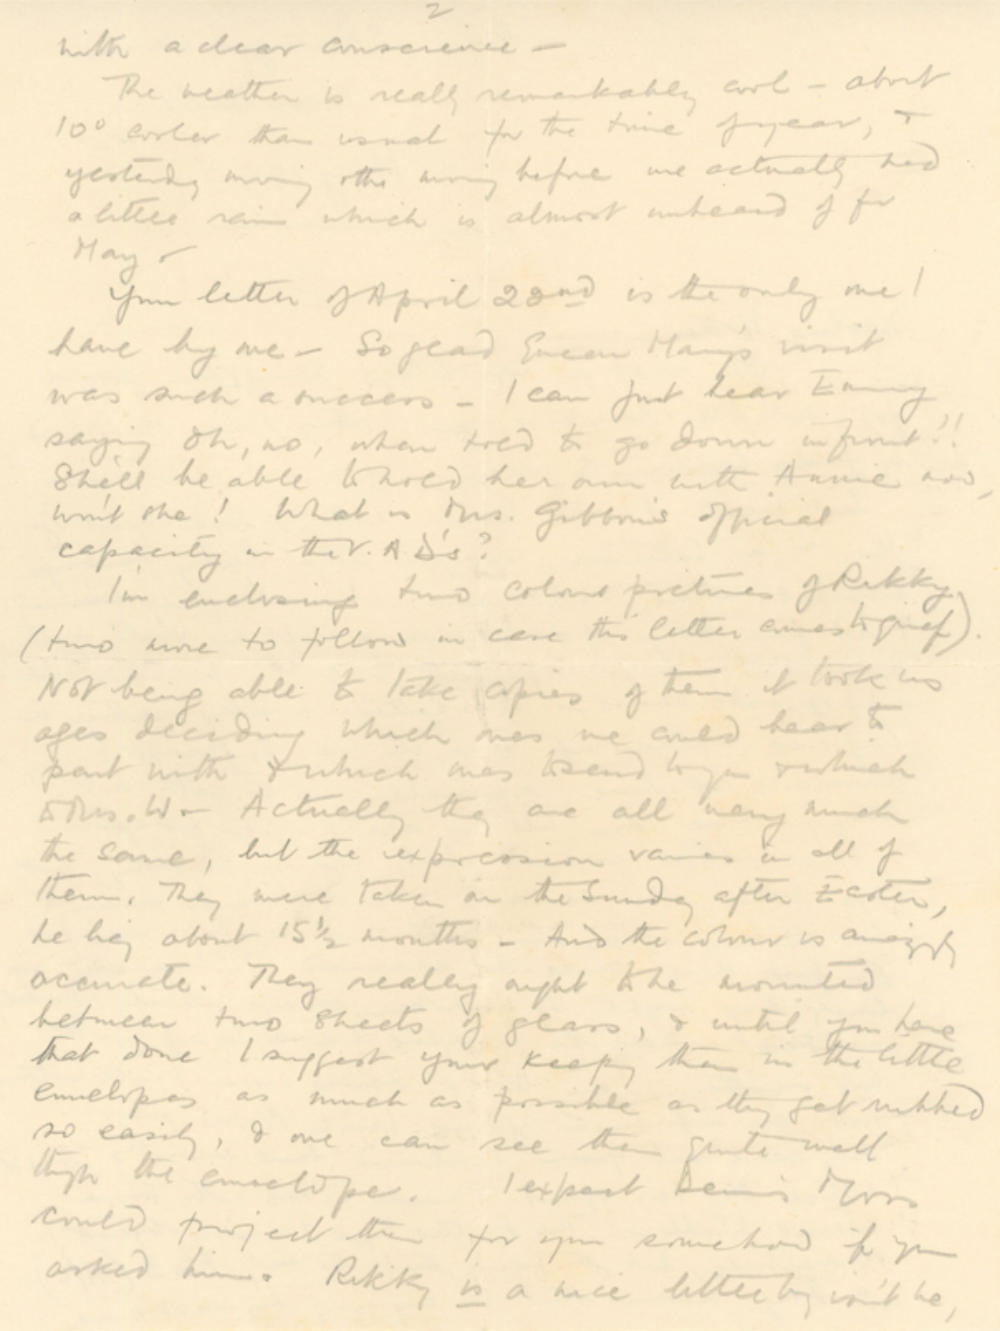 2
with a clear conscience –
The weather is really remarkably cool – about
10° cooler than usual for the time of year, &
yesterday morning & the morning before we actually had
a little rain which is almost unheard of for
May –
Your letter of April 22nd is the only one I
have by me – So glad Queen Mary's visit
was such a success – I can just hear Emmy
saying Oh, no, when told to go down in front!!
She'll be able to hold her own with Annie now,
won't she! What is Mrs. Gibbons official
capacity in the V.A.D's?
I'm enclosing two colour pictures of Rikky
(two more to follow in case this letter comes to grief).
Not being able to take copies of them it took us
ages deciding which ones we could bear to
part with & which ones to send to you & which
to Mrs. W – Actually they are all very much
the same, but the expression varies in all of
them. They were taken on the Sunday after Easter,
he being about 15½ months – And the colour is amazingly
accurate. They really ought to be mounted
between two sheets of glass, & until you have
that done I suggest your keeping them in the little
envelopes as much as possible as they get rubbed
so easily, & one can see them quite well
through the envelope. I expect Denis
could project them for you somehow if you
asked him. Rikky is a nice little boy isn't he,